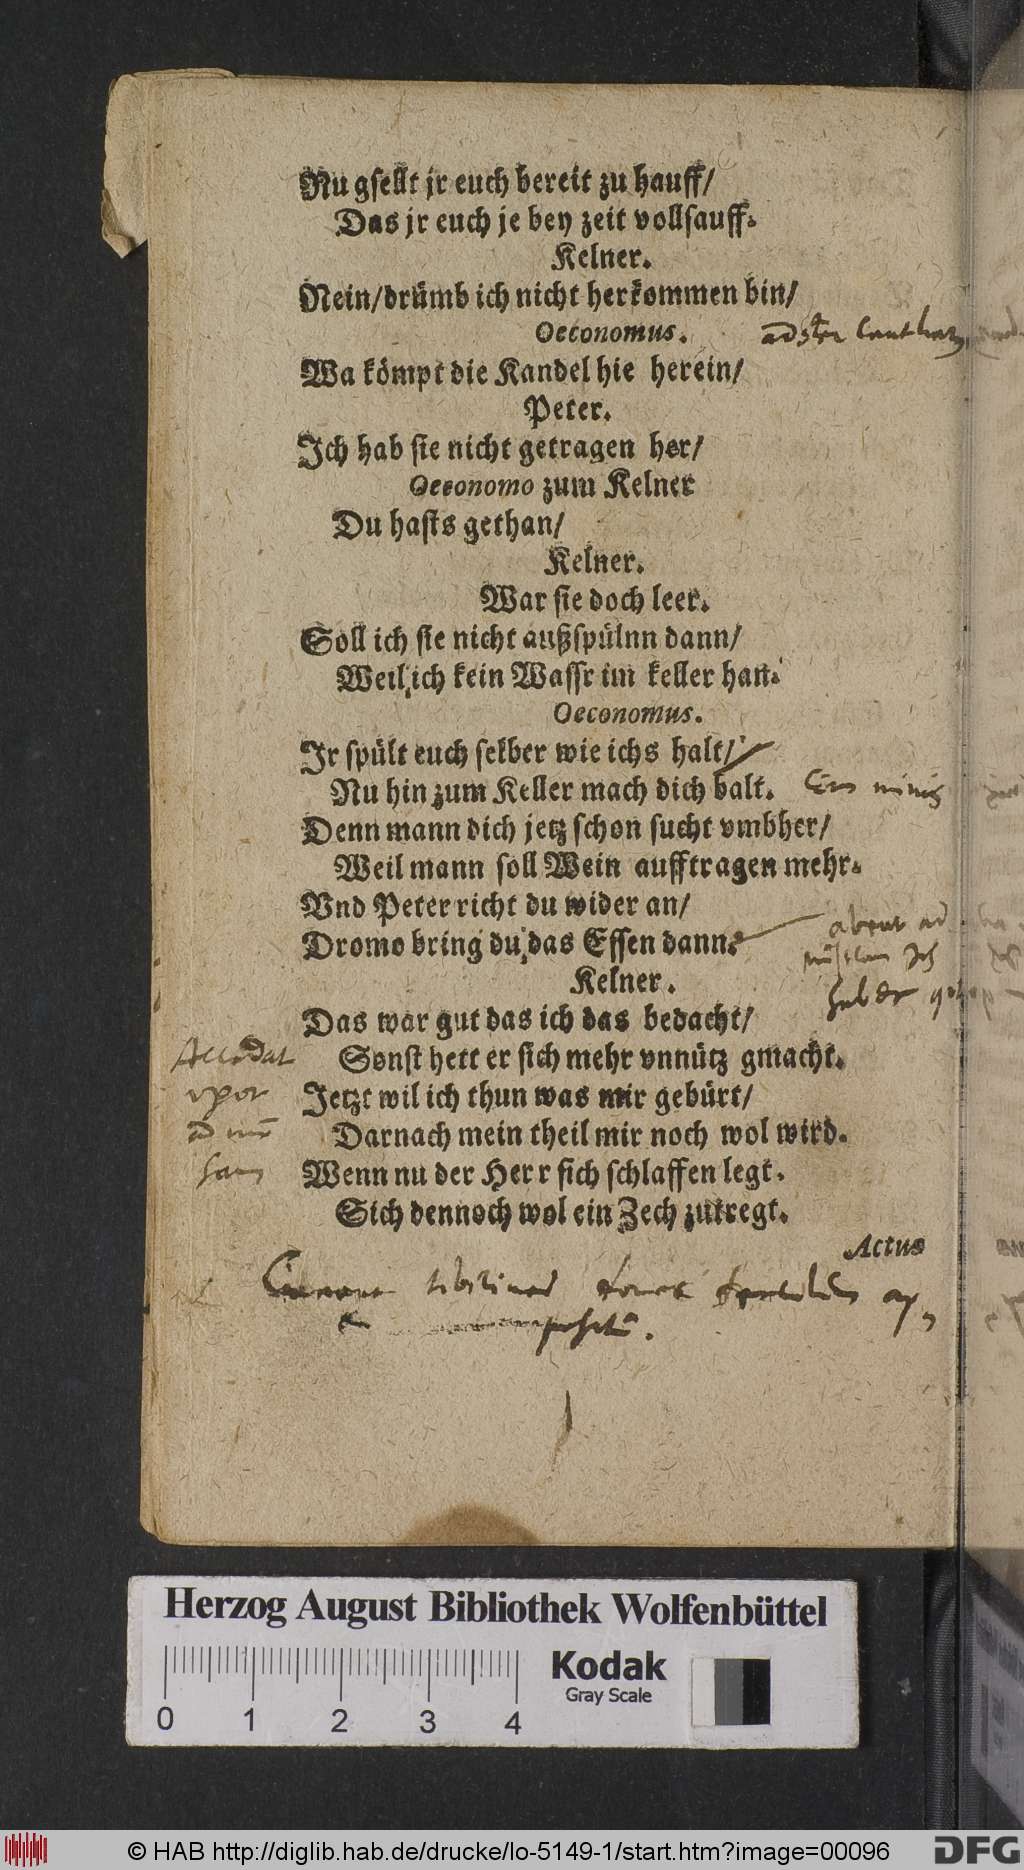 Nu gsellt jr euch bereit zu hauff/
Das jr euch je bey zeit vollsauff.
Kelner.
Nein/drümb ich nicht herkommen bin/
Oeconomus.
Wa kömpt die Kandel hie herein/
Peter.
Ich hab sie nicht getragen her/
Oeconomo zum Kelner
Du hasts gethan/
Kelner.
War sie doch leer.
Soll ich sie nicht außspülnn dann/
Weil ich kein Wassr im keller han.
Oeconomus.
Ir spült euch selber wie ichs halt/
Nu hin zum Keller mach dich balt.
Denn mann dich jetz schon sucht vmbher/
Weil mann soll Wein aufftragen mehr.
Vnd Peter richt du wider an/
Dromo bring du das Essen dann.
Kelner.
Das war gut das ich das bedacht/
Sonst hett er sich mehr vnnütz gmacht.
Jetzt wil ich thun was mir gebürt/
Darnach mein theil mir noch wol wird.
Wenn nu der Herr sich schlaffen legt.
Sich dennoch wol ein Zech zutregt.
Actus
Herzog August Bibliothek Wolfenbüttel
Kodak
Gray Scale
0 1 2 3 4
© HAB http://diglib.hab.de/drucke/lo-5149-1/start.htm?image=00096
DFG